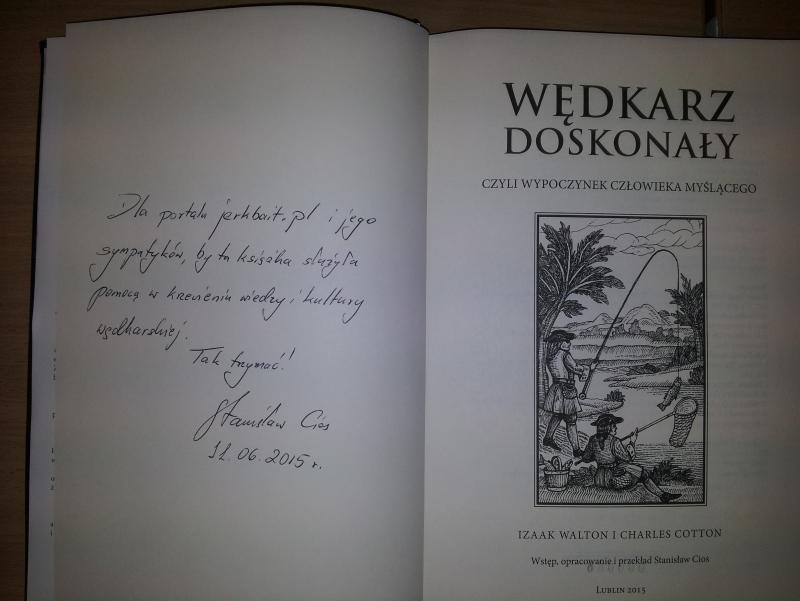 Dla portalu jerkbait.pl i jego
sympatyków, by ta książka służyła
pomocą w krzewieniu wiedzy i kultury
wędkarskiej.
Tak trzymać!
Stanisław Cios
11.06.2015 r.
WĘDKARZ
DOSKONAŁY
CZYLI WYPOCZYNEK CZŁOWIEKA MYŚLĄCEGO
IZAAK WALTON I CHARLES COTTON
Wstęp, opracowanie i przekład Stanisław Cios
LUBLIN 2015